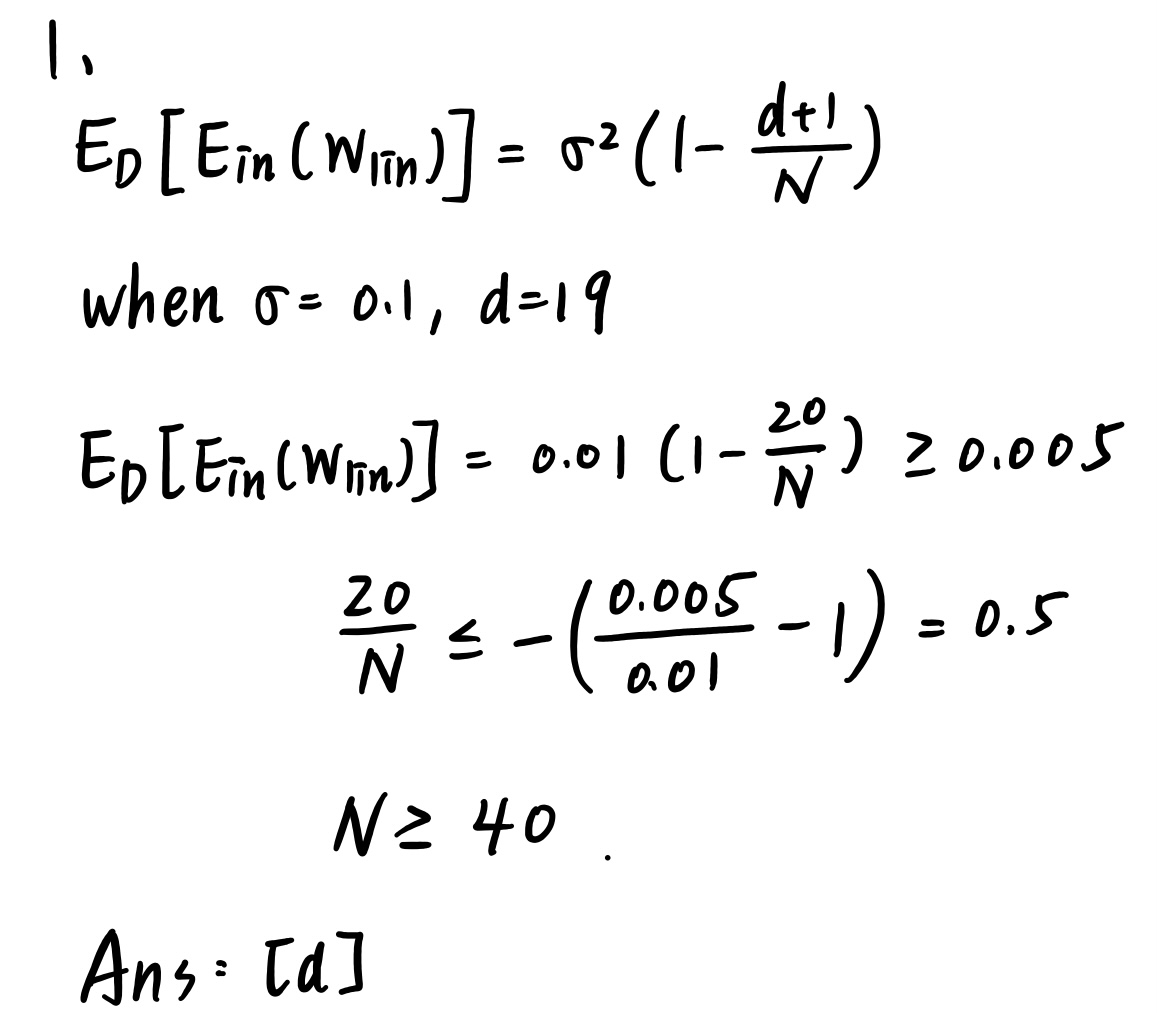 1、
E_D[E_in(W_lin)] = σ²(1 - \frac{d+1}{N})
when σ = 0.1, d=19
E_D[E_in(W_lin)] = 0.01 (1 - \frac{20}{N}) ≥ 0.005
\frac{20}{N} ≤ -(\frac{0.005}{0.01} - 1) = 0.5
N ≥ 40 .
Ans: [d]